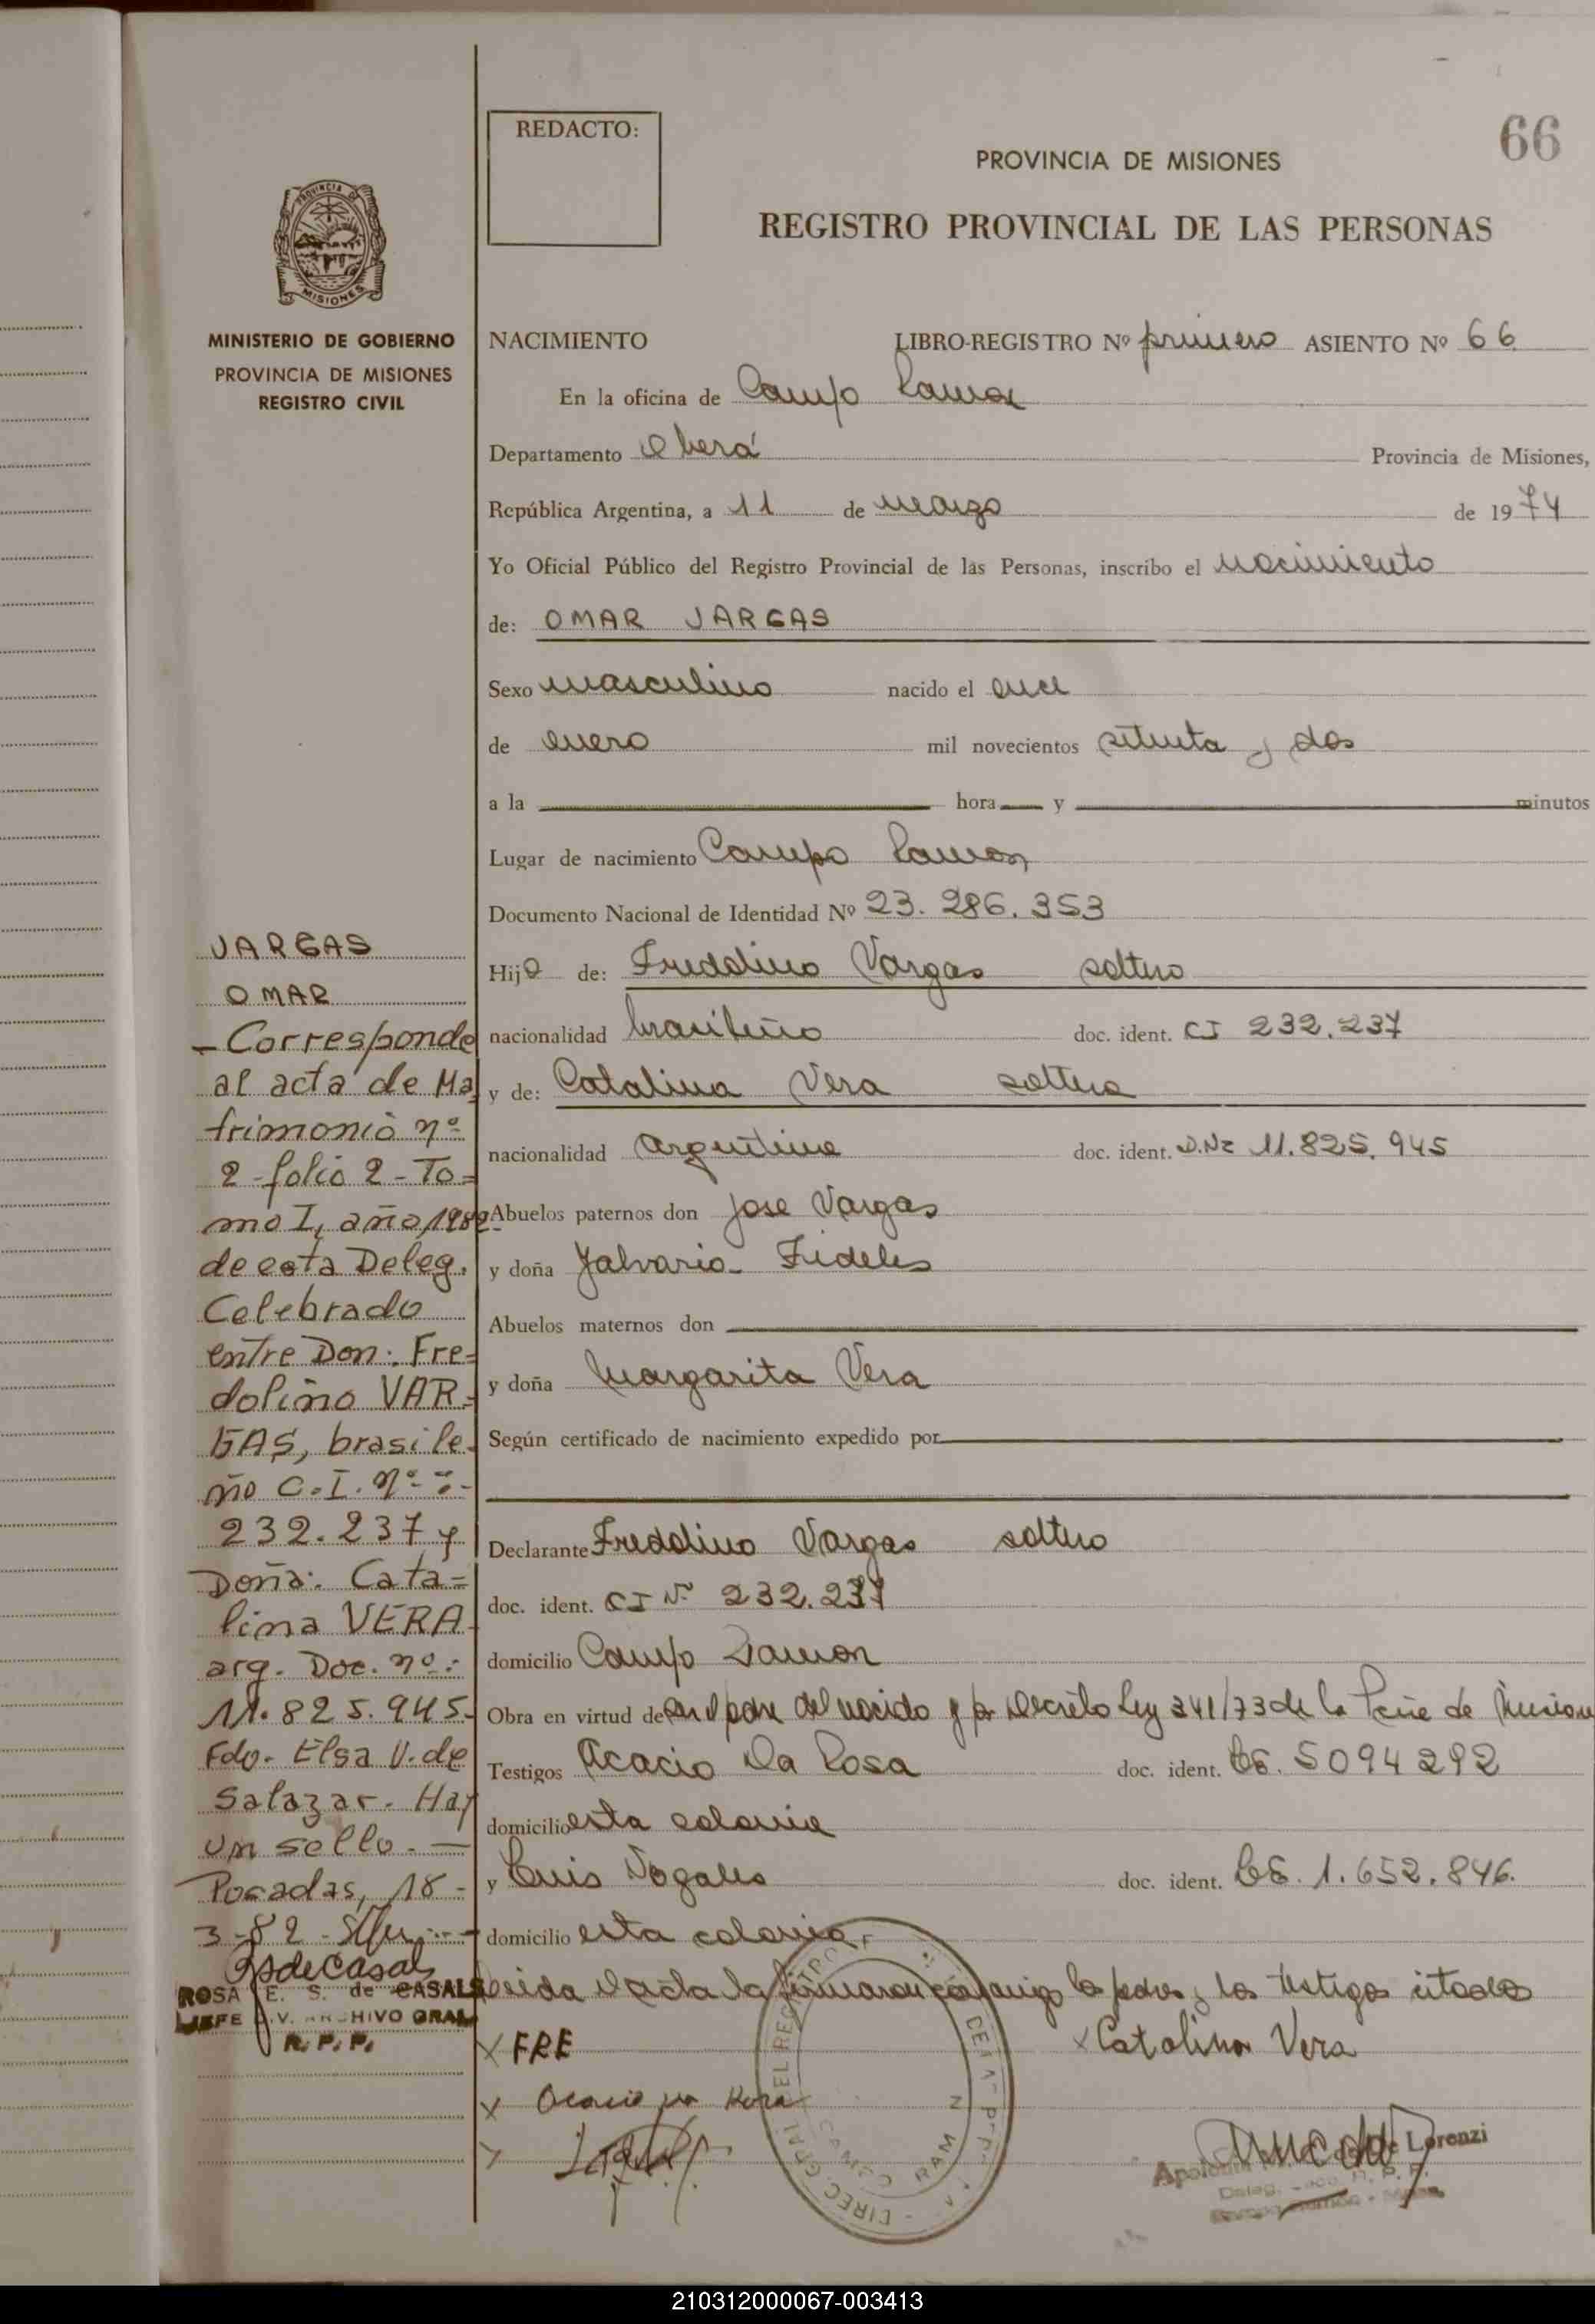 66
REDACTO:
PROVINCIA DE MISIONES
REGISTRO PROVINCIAL DE LAS PERSONAS
PROVINCIA DE
MISIONES
MINISTERIO DE GOBIERNO
PROVINCIA DE MISIONES
REGISTRO CIVIL
NACIMIENTO LIBRO-REGISTRO Nº primero ASIENTO Nº 66
En la oficina de Campo Ramon
Departamento Oberá Provincia de Misiones,
República Argentina, a 11 de marzo de 1974
Yo Oficial Público del Registro Provincial de las Personas, inscribo el nacimiento
de: OMAR VARGAS
Sexo masculino nacido el once
de enero mil novecientos setenta y dos
a la hora y minutos
Lugar de nacimiento Campo Ramon
Documento Nacional de Identidad Nº 23.286.353
Hijo de: Fredolino Vargas soltero
nacionalidad brasileño doc. ident. CI 232.237
y de: Catalina Vera soltera
nacionalidad argentina doc. ident. D.N.I 11.825.945
Abuelos paternos don Jose Vargas
y doña Jalvaria Fideles
Abuelos maternos don
y doña Margarita Vera
Según certificado de nacimiento expedido por
Declarante Fredolino Vargas soltero
doc. ident. CI Nº 232.237
domicilio Campo Ramon
Obra en virtud de ser el padre del nacido y por Decreto Ley 341/73 de la Pcia de Misiones
Testigos Acacio Da Rosa doc. ident. LE. 5094292
domicilio esta colonia
y Luis Nogales doc. ident. LE. 1.652.846.
domicilio esta colonia
Leida el acta la firmaron conmigo los padres y los testigos citados
X FRE X Catalina Vera
X Acacio da Rosa
X
VARGAS
OMAR
- Corresponde
al acta de Ma
trimonio nº
2 - folio 2 - To=
mo I, año 1982
de esta Deleg.
Celebrado
entre Don: Fre=
dolino VAR=
GAS, brasile=
ño C.I. nº :-
232.237 y
Doña: Cata=
lina VERA
arg. Doc. nº:
11.825.945-
Fdo. Elsa V. de
Salazar. Hay
un sello. -
Posadas, 18-
3-82
RSdeCasals
ROSA E. S. de CASALS
JEFE DIV. ARCHIVO GRAL
R. P. P.
DIREC. GRAL. DEL REGISTRO
CAMPO RAMON
de Lorenzi
210312000067-003413